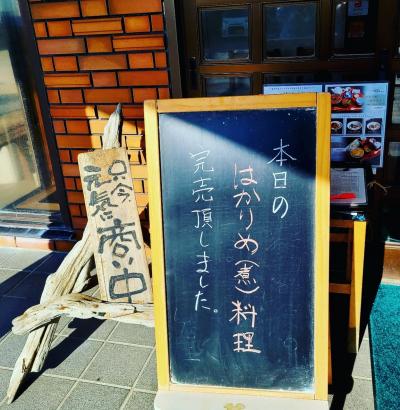 本日の
はかりめ(煮)料理
完売頂しました。
只今
元気
商い中